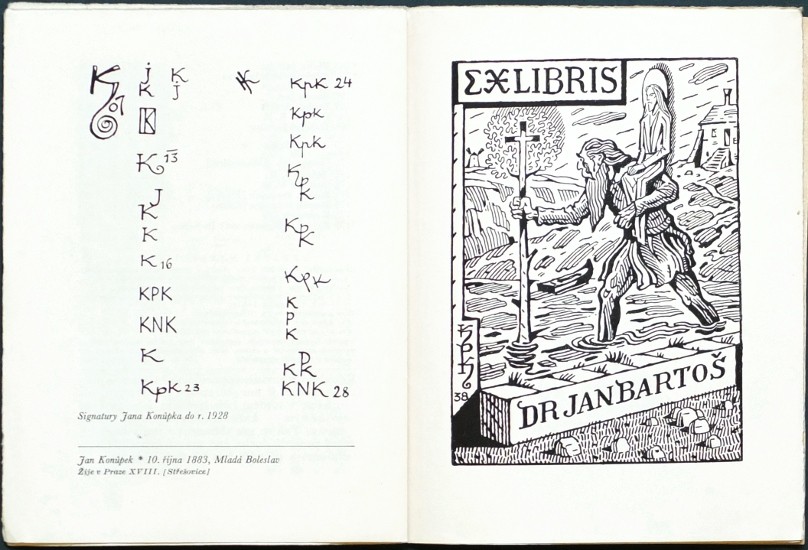 K 07
J K
K J
K
K
Kpk 24
Kpk
Kpk
K 13
Kp K
J K
K
Kp K
K 16
KPK
KpK
KNK
K P K
K
Kpk 23
KPK
KNK 28
Signatury Jana Konůpka do r. 1928
Jan Konůpek * 10. října 1883, Mladá Boleslav
Žije v Praze XVIII. [Střešovice]
EXLIBRIS
KPK
38
DR JAN BARTOŠ